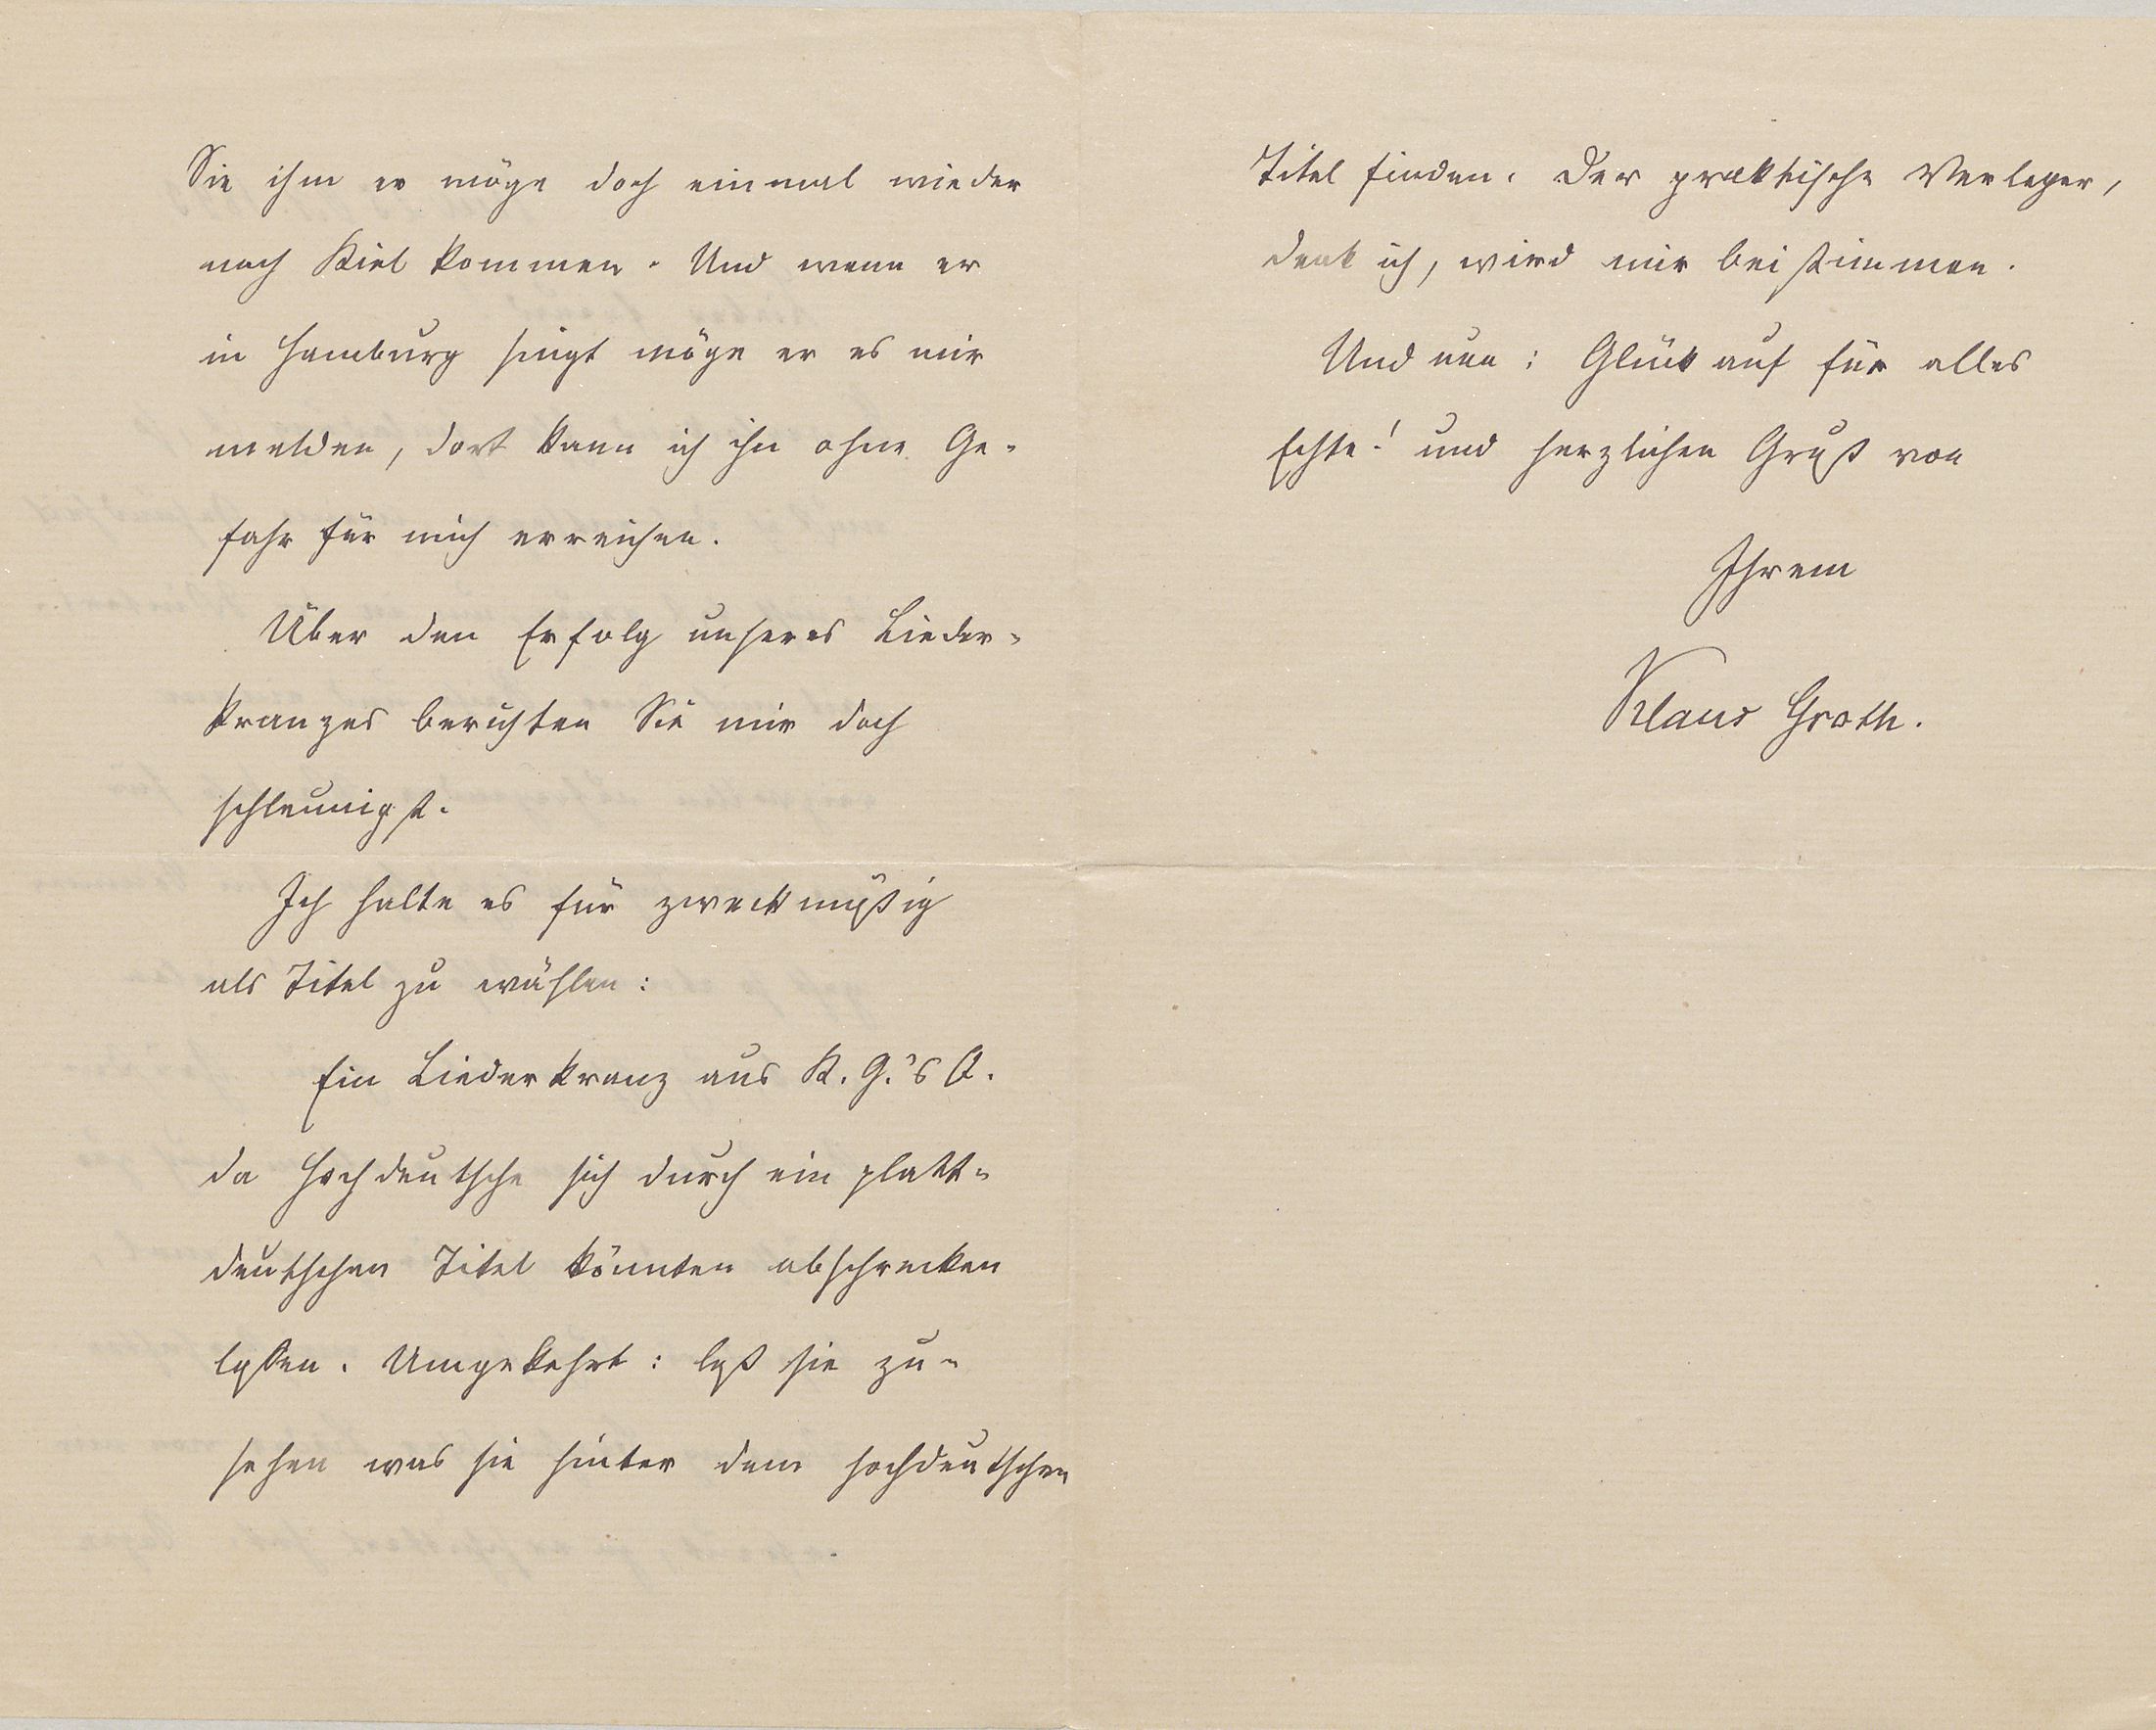 Sie ihm er möge doch einmal wieder
nach Kiel kommen. Und wenn er
in Hamburg singt möge er es mir
melden, dort kann ich ihn ohne Ge-
fahr für mich erreichen.
Über den Erfolg unseres Lieder-
kranzes berichten Sie mir doch
schleunigst.
Ich halte es für zweckmäßig
als Titel zu wählen:
Ein Liederkranz aus K. G.'s Q.
da Hochdeutsche sich durch ein platt-
deutschen Titel könnten abschrecken
laßen. Umgekehrt: laß sie zu-
sehen was sie hinter dem hochdeutschen
Titel finden. Der praktische Verleger,
denk ich, wird mir beistimmen.
Und nun: Glück auf für alles
Echte! und herzlichen Gruß von
Ihrem
Klaus Groth.